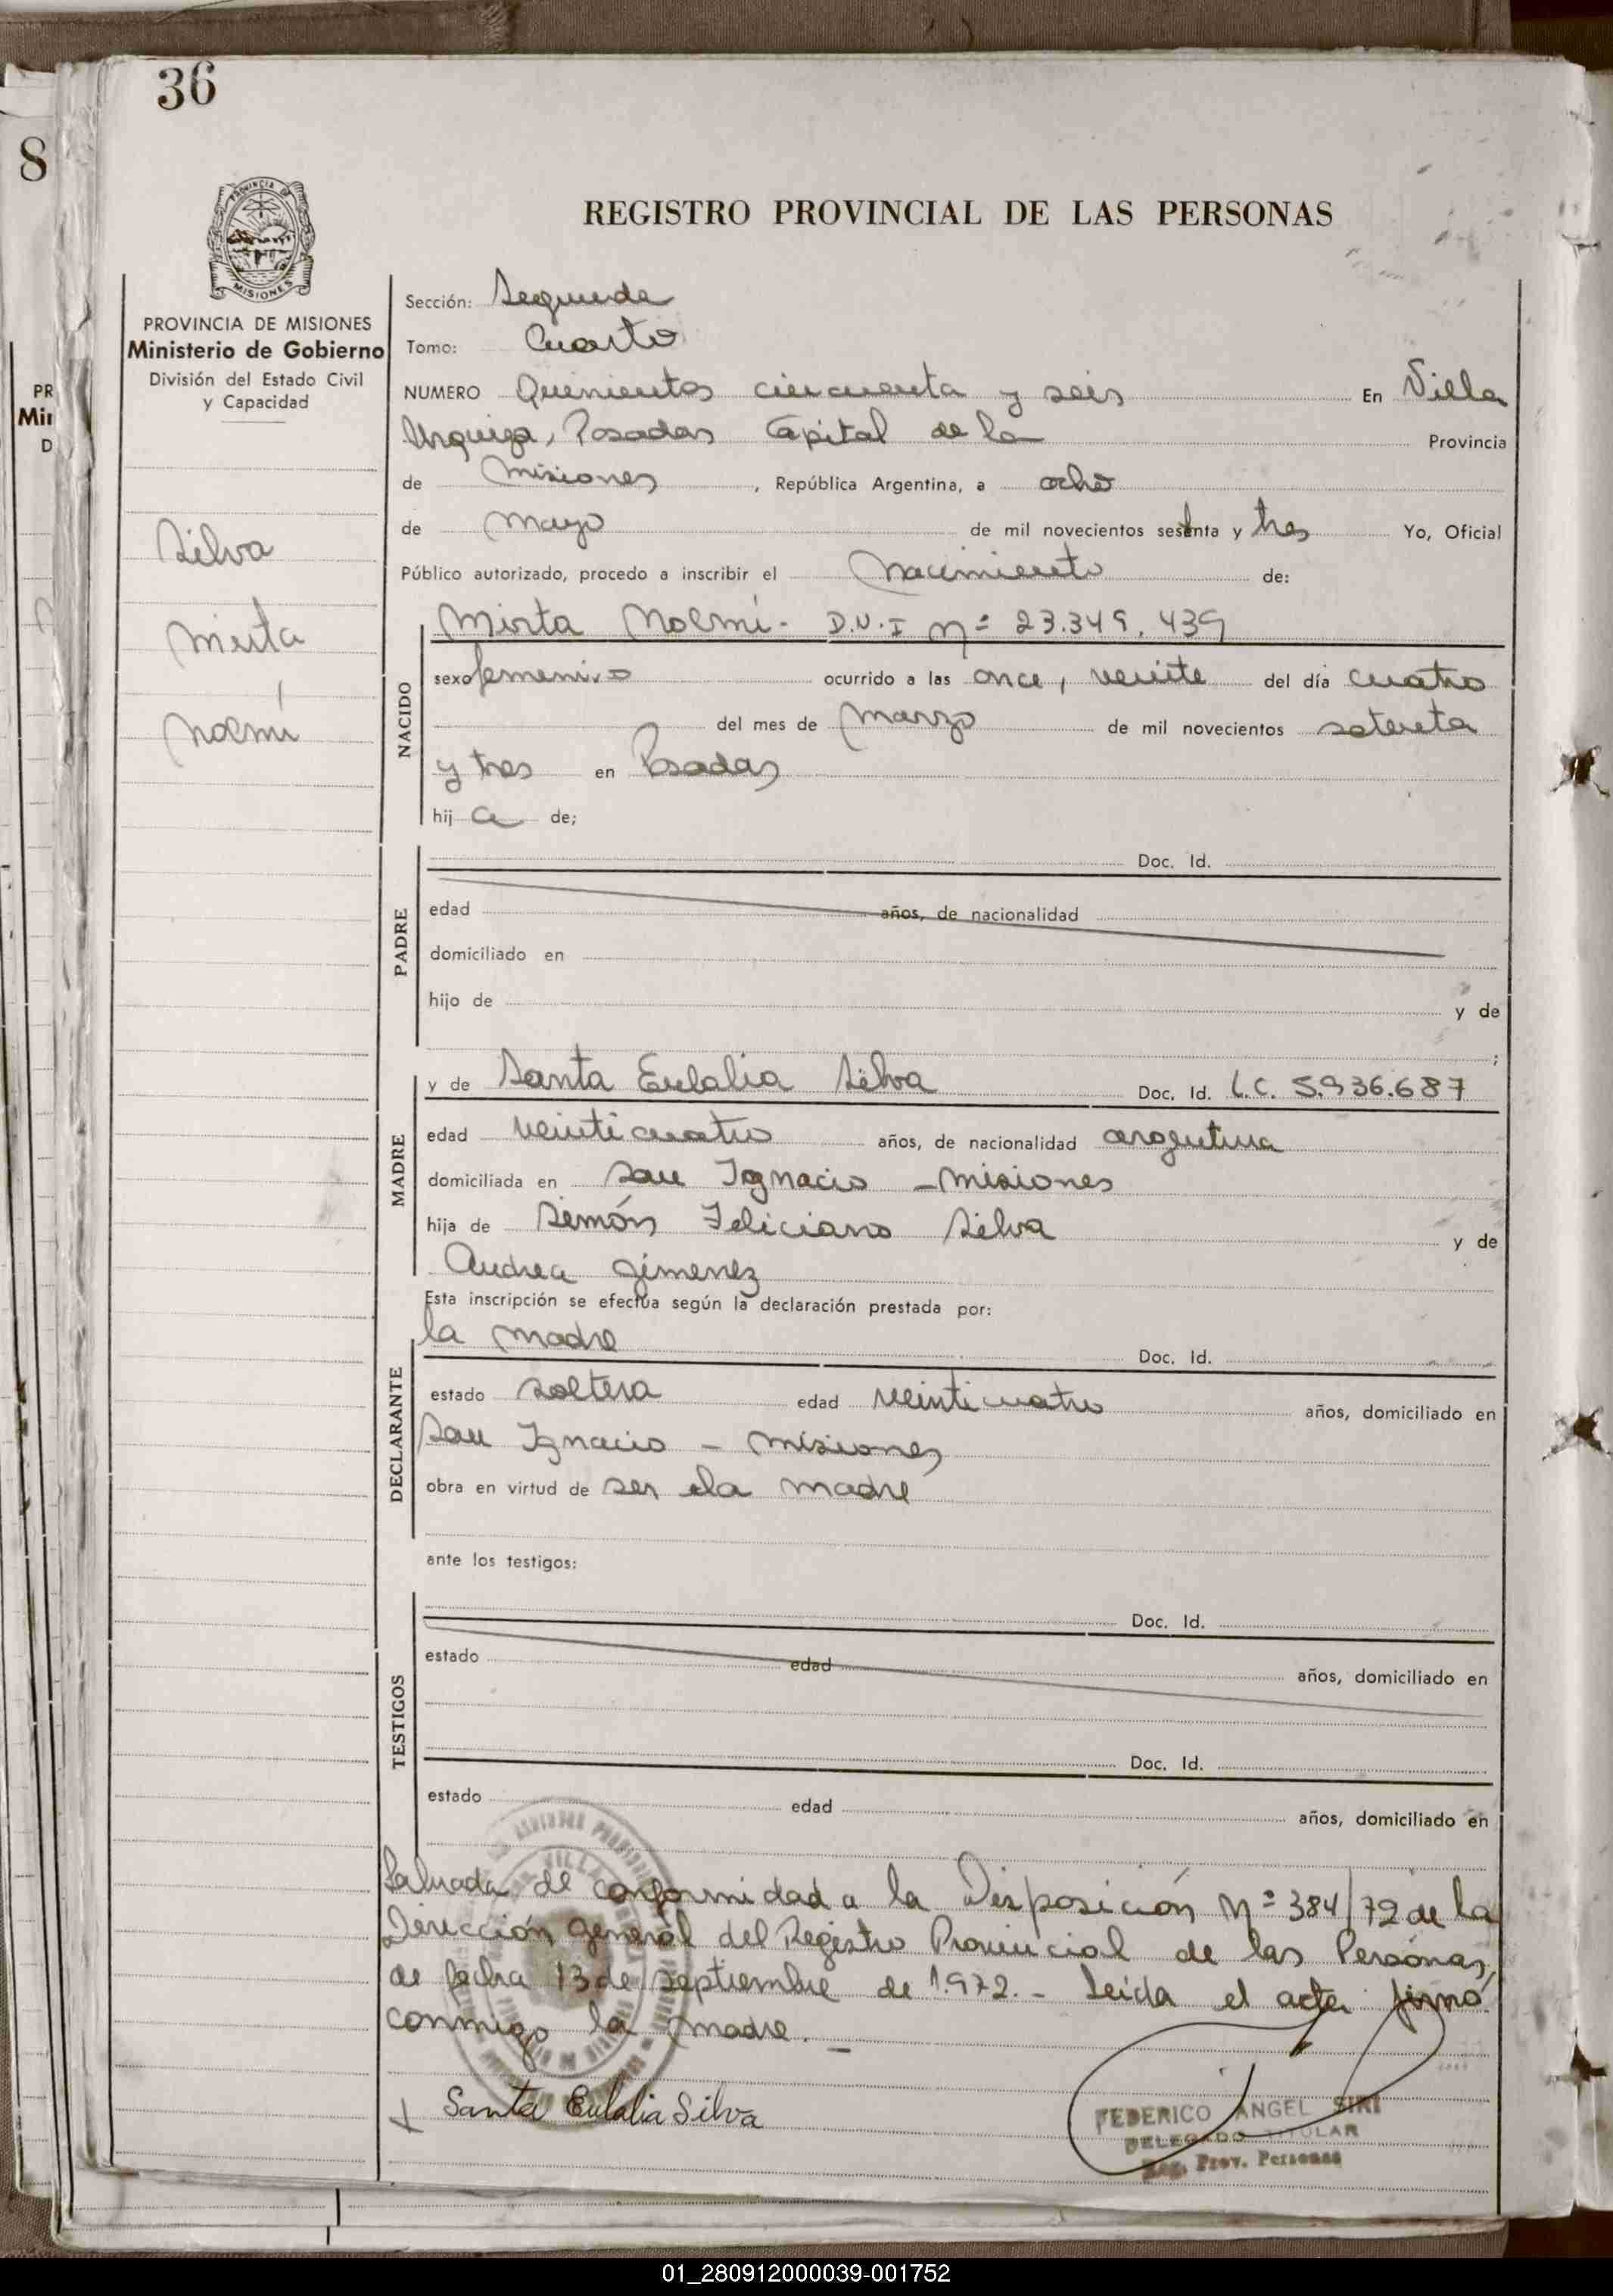 36
8
PROVINCIA DE
MISIONES
REGISTRO PROVINCIAL DE LAS PERSONAS
PROVINCIA DE MISIONES
Ministerio de Gobierno
División del Estado Civil
y Capacidad
PR
Min
D
Silva
Mirta
Noemí
Sección: Segunda
Tomo: Cuarto
NUMERO Quinientos cincuenta y seis En Villa
Urquiza, Posadas Capital de la Provincia
de Misiones, República Argentina, a ocho
de Mayo de mil novecientos setenta y tres Yo, Oficial
Público autorizado, procedo a inscribir el Nacimiento de:
NACIDO
Mirta Noemí- D.N.I Nº 23.349.439
sexo femenino ocurrido a las once, veinte del día cuatro
del mes de Marzo de mil novecientos setenta
y tres en Posadas
hija de;
PADRE
Doc. Id.
edad años, de nacionalidad
domiciliado en
hijo de y de
;
MADRE
y de Santa Eulalia Silva Doc. Id. L.C. 5.936.687
edad veinticuatro años, de nacionalidad argentina
domiciliada en San Ignacio - Misiones
hija de Simón Feliciano Silva y de
Andrea Gimenez
Esta inscripción se efectúa según la declaración prestada por:
DECLARANTE
la madre Doc. Id.
estado soltera edad veinticuatro años, domiciliado en
San Ignacio - Misiones
obra en virtud de ser la madre
ante los testigos:
TESTIGOS
Doc. Id.
estado edad años, domiciliado en
Doc. Id.
estado edad años, domiciliado en
Labrada de conformidad a la Disposición Nº 384/72 de la
Dirección General del Registro Provincial de las Personas,
de fecha 13 de Septiembre de 1.972.- Leída el acta firmó
conmigo la madre. -
Santa Eulalia Silva
FEDERICO ANGEL SIRI
DELEGADO TITULAR
Reg. Prov. Personas
01_280912000039-001752